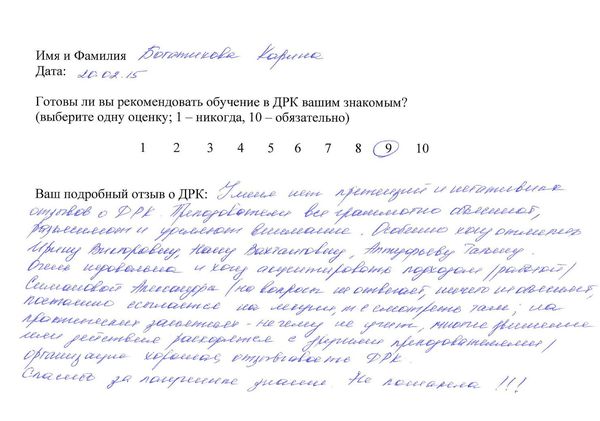 Имя и Фамилия Богатикова Карина
Дата: 20.02.15
Готовы ли вы рекомендовать обучение в ДРК вашим знакомым?
(выберите одну оценку; 1 – никогда, 10 – обязательно)
1 2 3 4 5 6 7 8 9 10
Ваш подробный отзыв о ДРК: У меня нет претензий и негативных
отзывов о ДРК. Преподаватели все грамотно объясняют,
и уделяют внимание. Особенно хочу отметить
Ирину Викторовну, Нану Вахтанговну, Татьяну.
Очень недовольна и хочу подходом /работой/
Александры /на вопросы не отвечает, ничего не объясняет,
постоянно ссылается на лекции, т.е смотреть там; на
практических занятиях - ничему не учит, многие движения
или действия расходятся с другими преподавателями/
организация хорошая, отзывчивость ДРК.
Спасибо за полученные знания. Не пожалела !!!